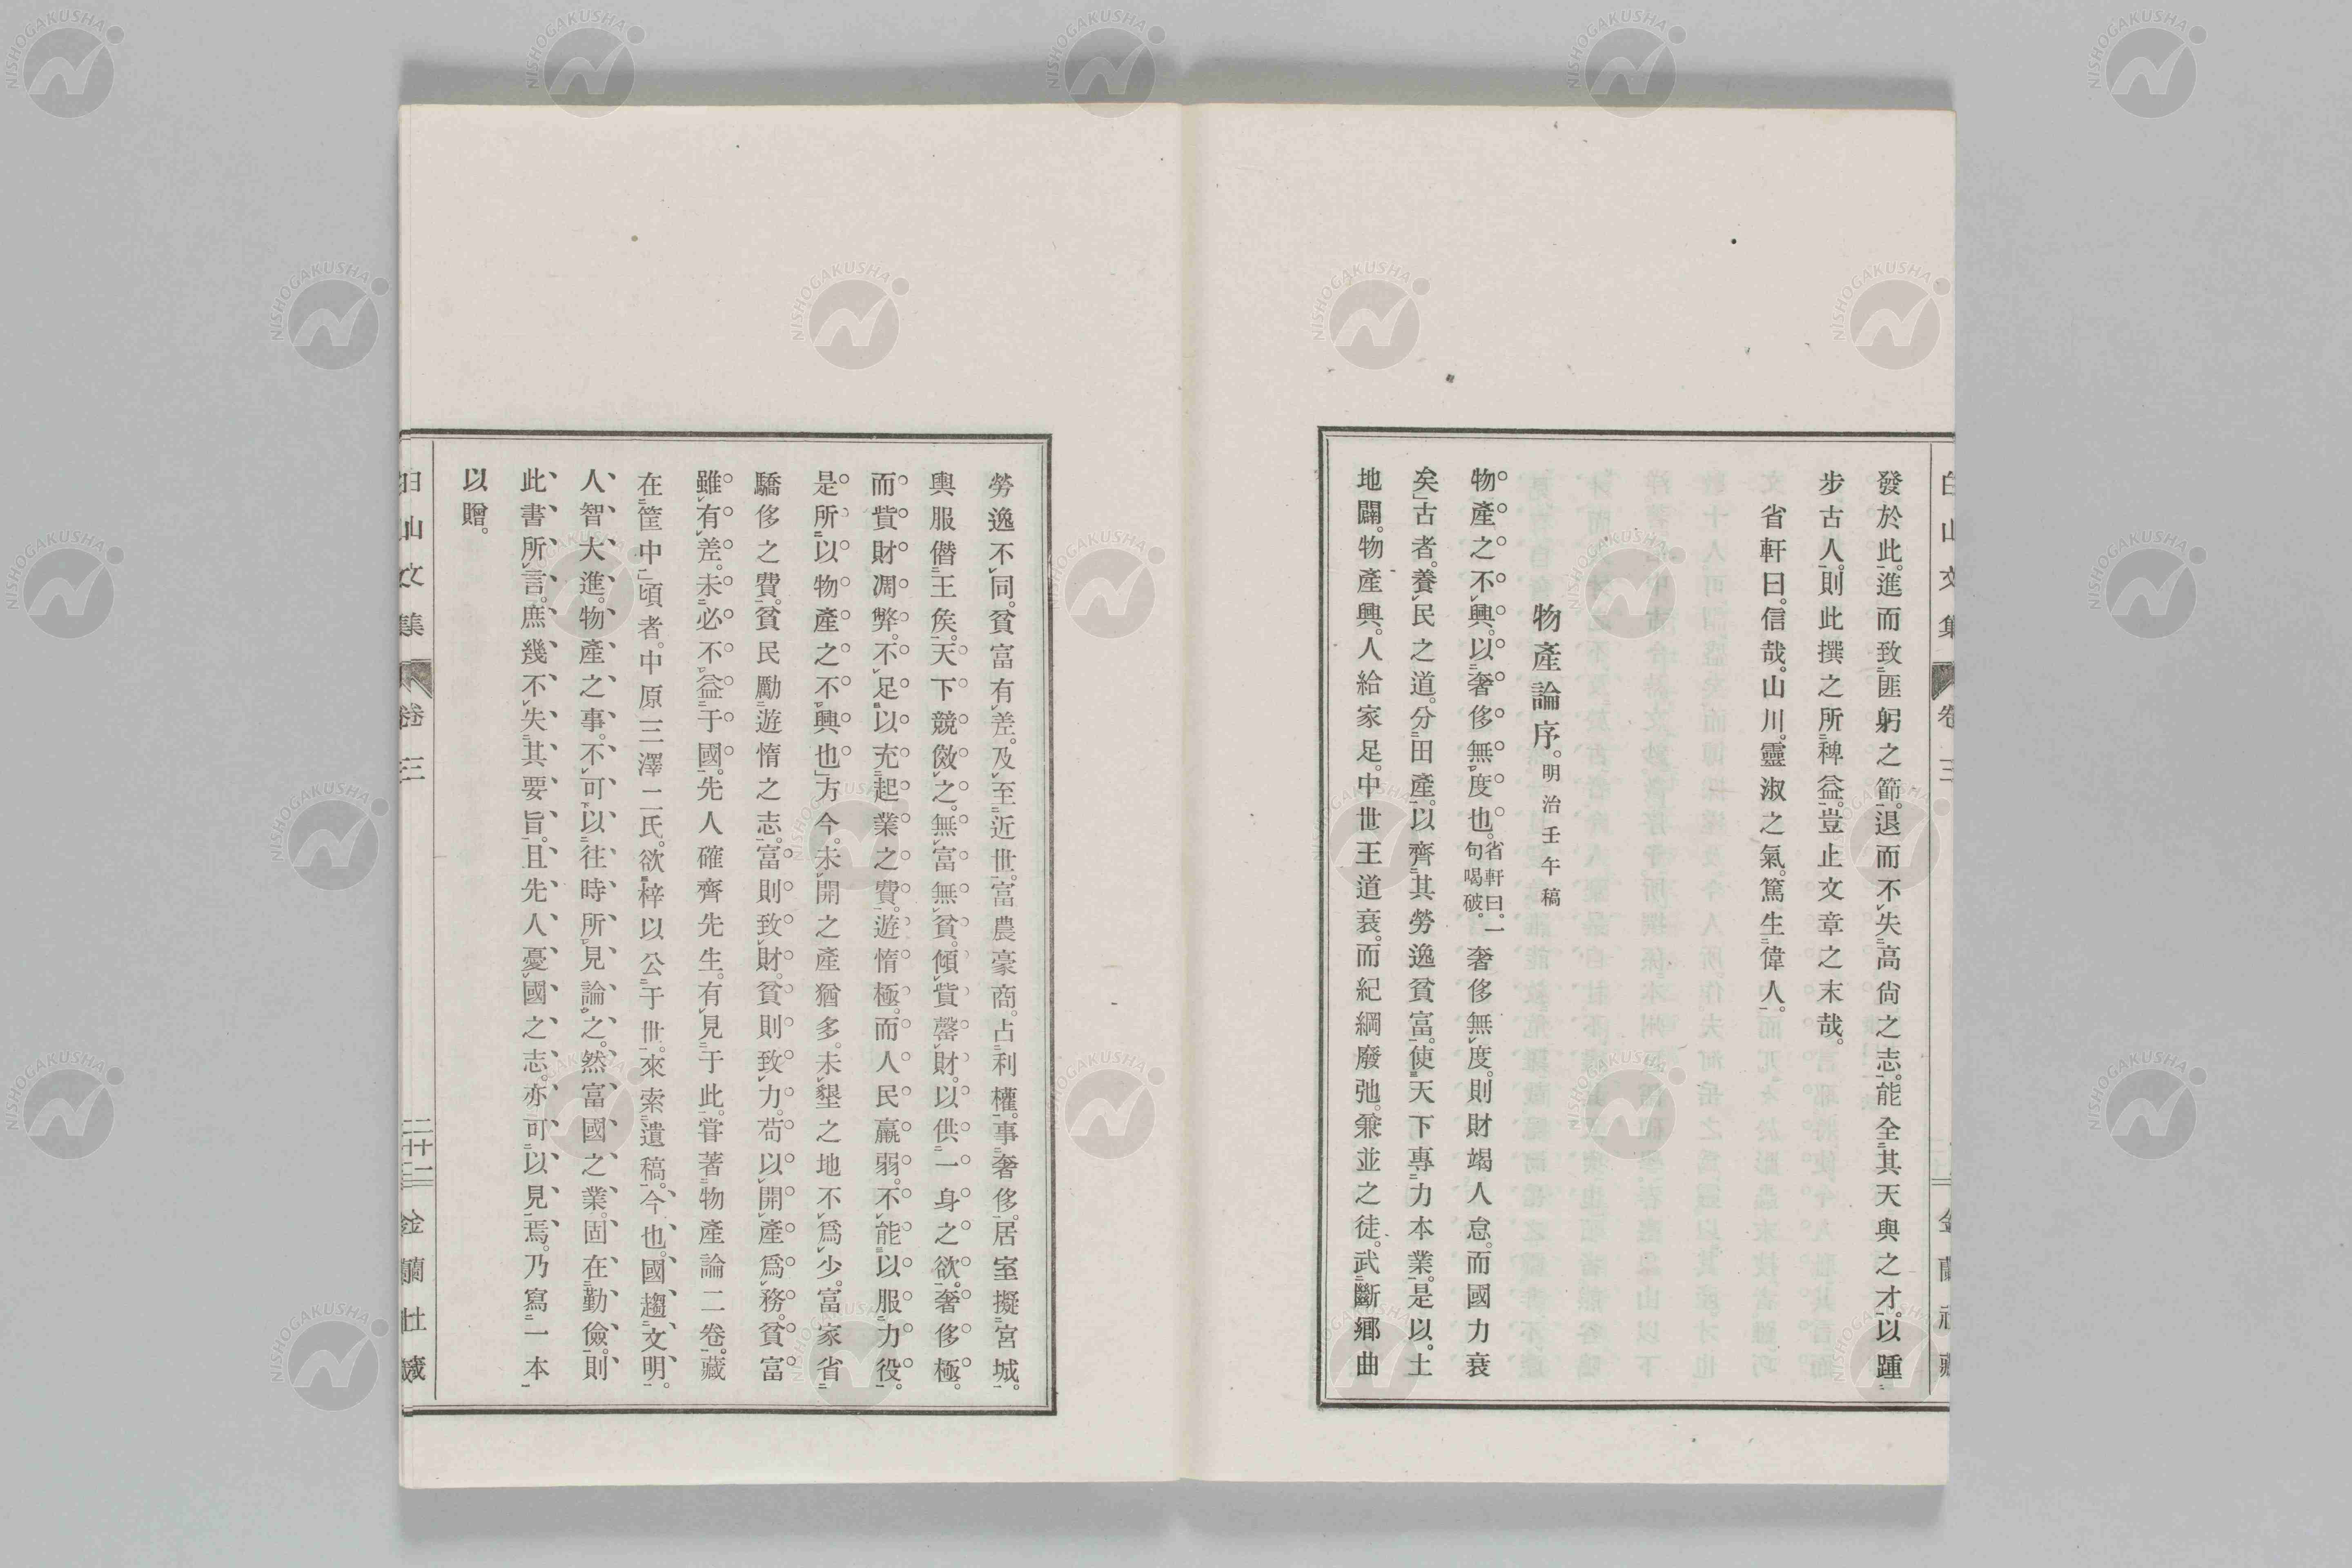 發於此。進而致匪躬之節。退而不失高尙之志。能全其天與之才。以踵
步古人。則此撰之所稗益。豈止文章之末哉。
省軒曰。信哉。山川。靈淑之氣。篤生偉人。
物產論序。明治壬午稿
物產之不興。以奢侈無度也。省軒曰。一句喝破。奢侈無度。則財竭人怠。而國力衰
矣。古者。養民之道。分田產。以齊其勞逸貧富。使天下專力本業。是以。土
地闢。物產興。人給家足。中世王道衰。而紀綱廢弛。兼並之徒。武斷鄉曲
勞逸不同。貧富有差。及至近世。富農豪商。占利權。事奢侈。居室擬宮城。
輿服僭王矦。天下競傚之。無富無貧。傾貲罄財。以供一身之欲。奢侈極。
而貲財凋弊。不足以充起業之費。遊惰極。而人民羸弱。不能以服力役。
是所以物產之不興也。方今。未開之產猶多。未墾之地不爲少。富家省
驕侈之費。貧民勵遊惰之志。富則致財。貧則致力。苟以開產爲務。貧富
雖有差。未必不益于國。先人確齊先生。有見于此。嘗著物產論二卷。藏
在筐中。頃者。中原三澤二氏。欲梓以公于世。來索遺稿。今也。國趨文明。
人智大進。物產之事。不可以往時所見論之。然富國之業。固在勤儉。則
此書所言。庶幾不失其要旨。且先人憂國之志。亦可以見焉。乃寫一本
以贈。
白山文集
卷三
金蘭社藏